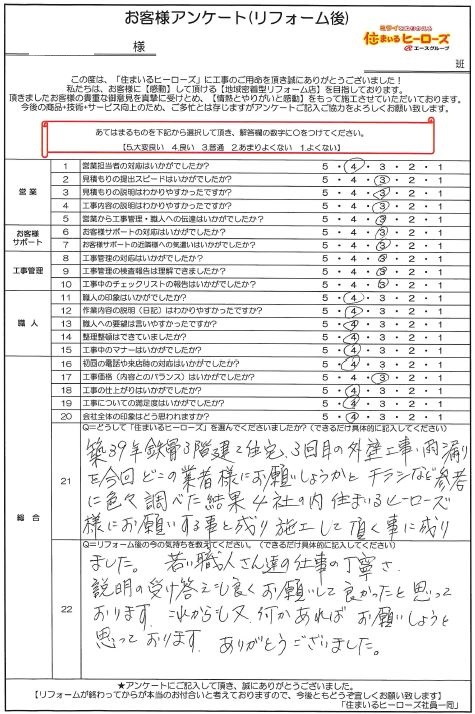 お客様アンケート(リフォーム後)
ミライをときめかせる
住まいるヒーローズ
エースグループ
様
班
この度は、「住まいるヒーローズ」に工事のご用命を頂き誠にありがとうございました!
私たちは、お客様に【感動】して頂ける【地域密着型リフォーム店】を目指しております。
頂きましたお客様の貴重な御意見を真摯に受けとめ、【情熱とやりがいと感動】をもって施工させていただいております。
今後の商品・技術・サービス向上のため、ご多忙とは存じますがアンケートご記入に協力をよろしくお願い致します。
あてはまるものを下記から選択して頂き、解答欄の数字に○をつけてください。
【5.大変良い 4.良い 3.普通 2.あまりよくない 1.よくない】
営業
1 営業担当者の対応はいかがでしたか? 5・4・3・2・1
2 見積もりの提出スピードはいかがでしたか? 5・4・3・2・1
3 見積もりの説明はわかりやすかったですか? 5・4・3・2・1
4 工事内容の説明はわかりやすかったですか? 5・4・3・2・1
5 営業から工事管理・職人への伝達はいかがでしたか? 5・4・3・2・1
お客様サポート
6 お客様サポートの対応はいかがでしたか? 5・4・3・2・1
7 お客様サポートの近隣様への気遣いはいかがでしたか? 5・4・3・2・1
工事管理
8 工事管理の対応はいかがでしたか? 5・4・3・2・1
9 工事管理の検査報告は理解できましたか? 5・4・3・2・1
10 工事中のチェックリストの報告はいかがでしたか? 5・4・3・2・1
職人
11 職人の印象はいかがでしたか? 5・4・3・2・1
12 作業内容の説明(日記)はわかりやすかったですか? 5・4・3・2・1
13 職人への要望は言いやすかったですか? 5・4・3・2・1
14 整理整頓はできていましたか? 5・4・3・2・1
15 工事中のマナーはいかがでしたか? 5・4・3・2・1
総合
16 初回の電話や来店時の対応はいかがでしたか? 5・4・3・2・1
17 工事価格(内容とのバランス)はいかがでしたか? 5・4・3・2・1
18 工事の仕上がりはいかがでしたか? 5・4・3・2・1
19 工事についての満足度はいかがでしたか? 5・4・3・2・1
20 会社全体の印象はどう思われますか? 5・4・3・2・1
21
Q=どうして「住まいるヒーローズ」を選んでくださいましたか?(できるだけ具体的に記入してください)
築39年鉄骨3階建て住宅、3回目の外壁工事、雨漏り
を今回どこの業者様にお願いしようかとチラシなど参考
に色々調べた結果4社の内住まいるヒーローズ
様にお願いする事と成り施工して頂く事に成り
22
Q=リフォーム後の今の気持ちを教えてください。(できるだけ具体的に記入してください)
ました。若い職人さん達の仕事の丁寧さ、
説明の受け答えも良くお願いして良かったと思って
おります。これからも又、何かあればお願いしようと
思っております。ありがとうございました。
★アンケートにご記入して頂き、誠にありがとうございました。
【リフォームが終わってからが本当のお付合いと考えておりますので、今後ともどうぞ宜しくお願い致します】
「住まいるヒーローズ社員一同」